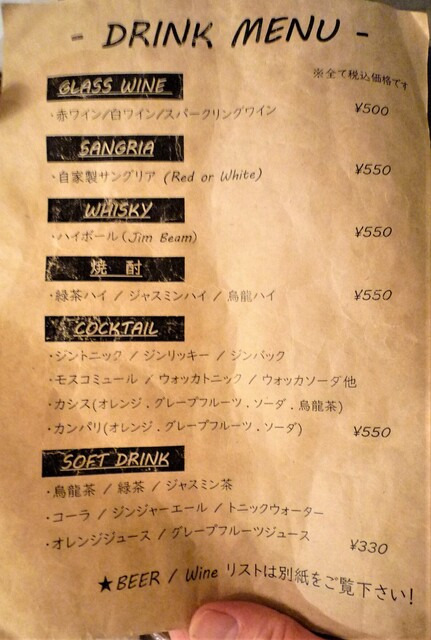 - DRINK MENU -
※全て税込価格です
GLASS WINE
・赤ワイン/白ワイン/スパークリングワイン ¥500
SANGRIA
・自家製サングリア (Red or White) ¥550
WHISKY
・ハイボール (Jim Beam) ¥550
焼 酎
・緑茶ハイ / ジャスミンハイ / 烏龍ハイ ¥550
COCKTAIL
・ジントニック / ジンリッキー / ジンバック
・モスコミュール / ウォッカトニック / ウォッカソーダ他
・カシス(オレンジ . グレープフルーツ . ソーダ . 烏龍茶)
・カンパリ(オレンジ . グレープフルーツ . ソーダ) ¥550
SOFT DRINK
・烏龍茶 / 緑茶 / ジャスミン茶
・コーラ / ジンジャーエール / トニックウォーター
・オレンジジュース / グレープフルーツジュース ¥330
★BEER / Wine リストは別紙をご覧下さい!